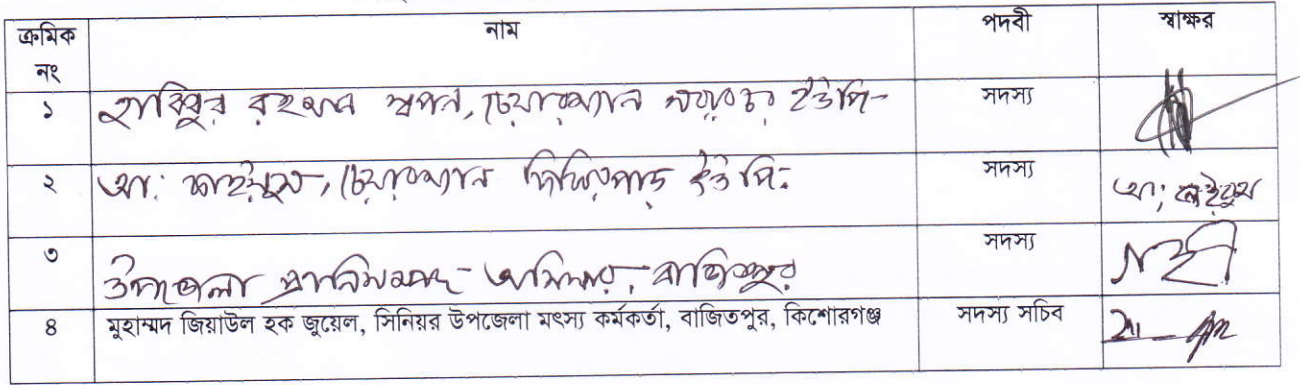 ক্রমিক নং নাম পদবী স্বাক্ষর
১ হাবিবুর রহমান স্বপন, চেয়ারম্যান ইউপি- সদস্য
২ আ: কাইয়ুম, চেয়ারম্যান দিঘিরপাড় ইউপি: সদস্য আ: কাইয়ুম
৩ উপজেলা প্রানিসম্পদ- অফিসার, বাজিতপুর সদস্য
৪ মুহাম্মদ জিয়াউল হক জুয়েল, সিনিয়র উপজেলা মৎস্য কর্মকর্তা, বাজিতপুর, কিশোরগঞ্জ সদস্য সচিব